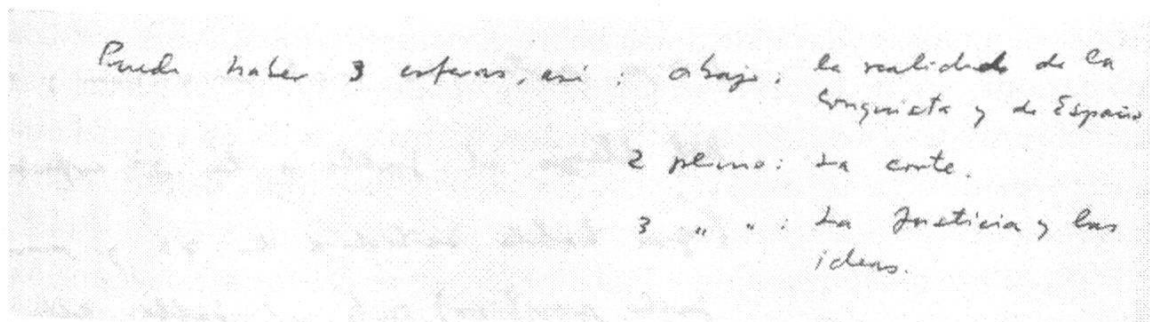 Puede haber 3 esferas, así: abajo: la realidad de la
Conquista y de España
2 plano: La corte.
3 " " : La Justicia y las
ideas.